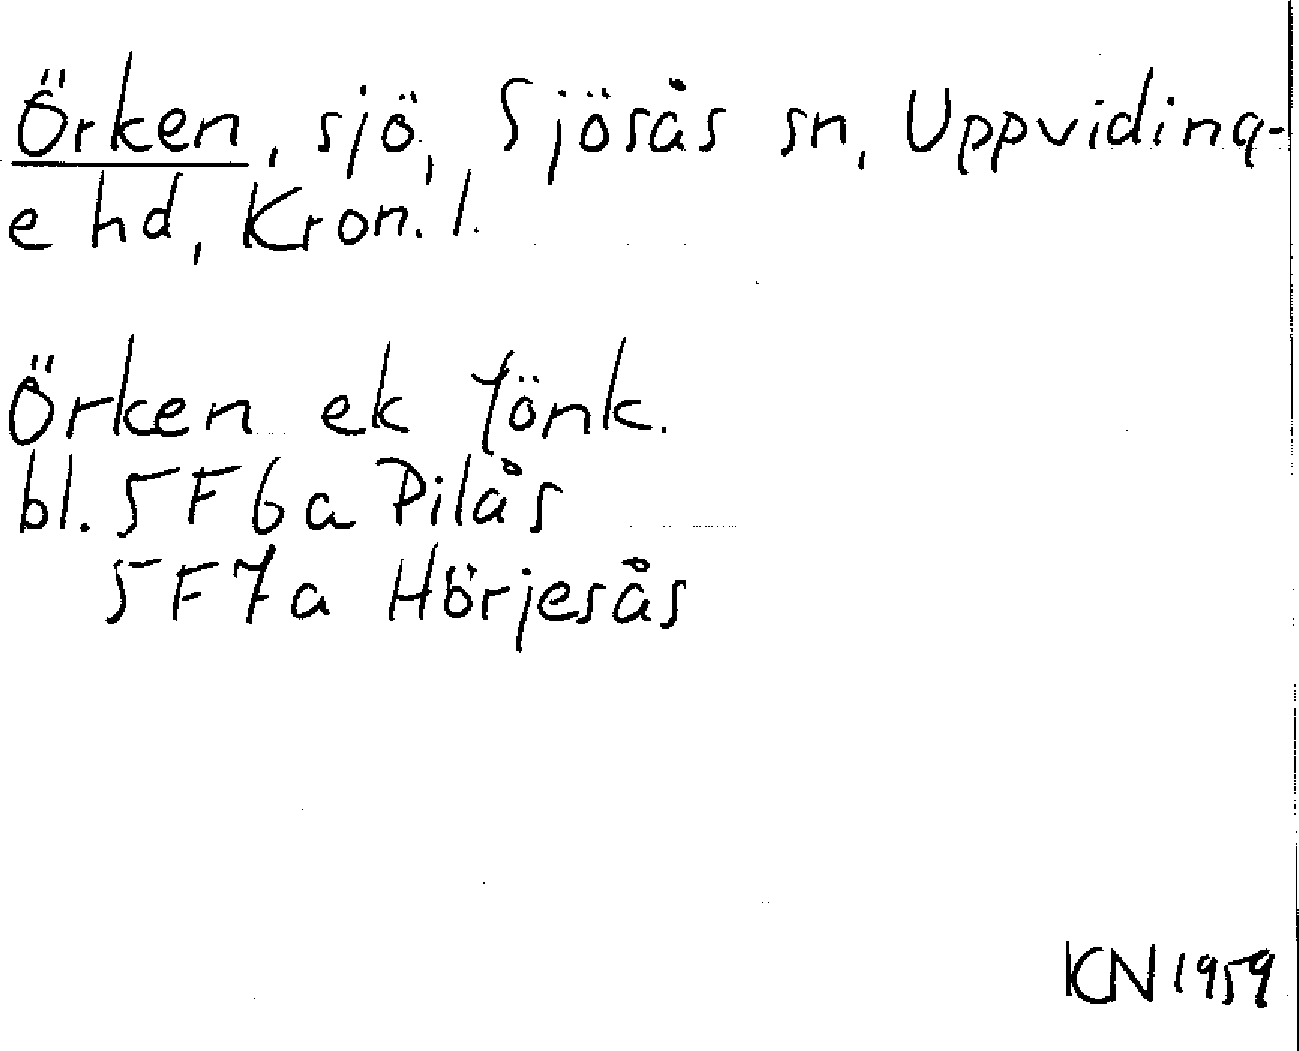 Örken, sjö, Sjösås sn, Uppviding-
e hd, Kron. l.
Örken ek Jönk.
bl. 5F6a Pilås
5F7a Hörjesås
KN 1959